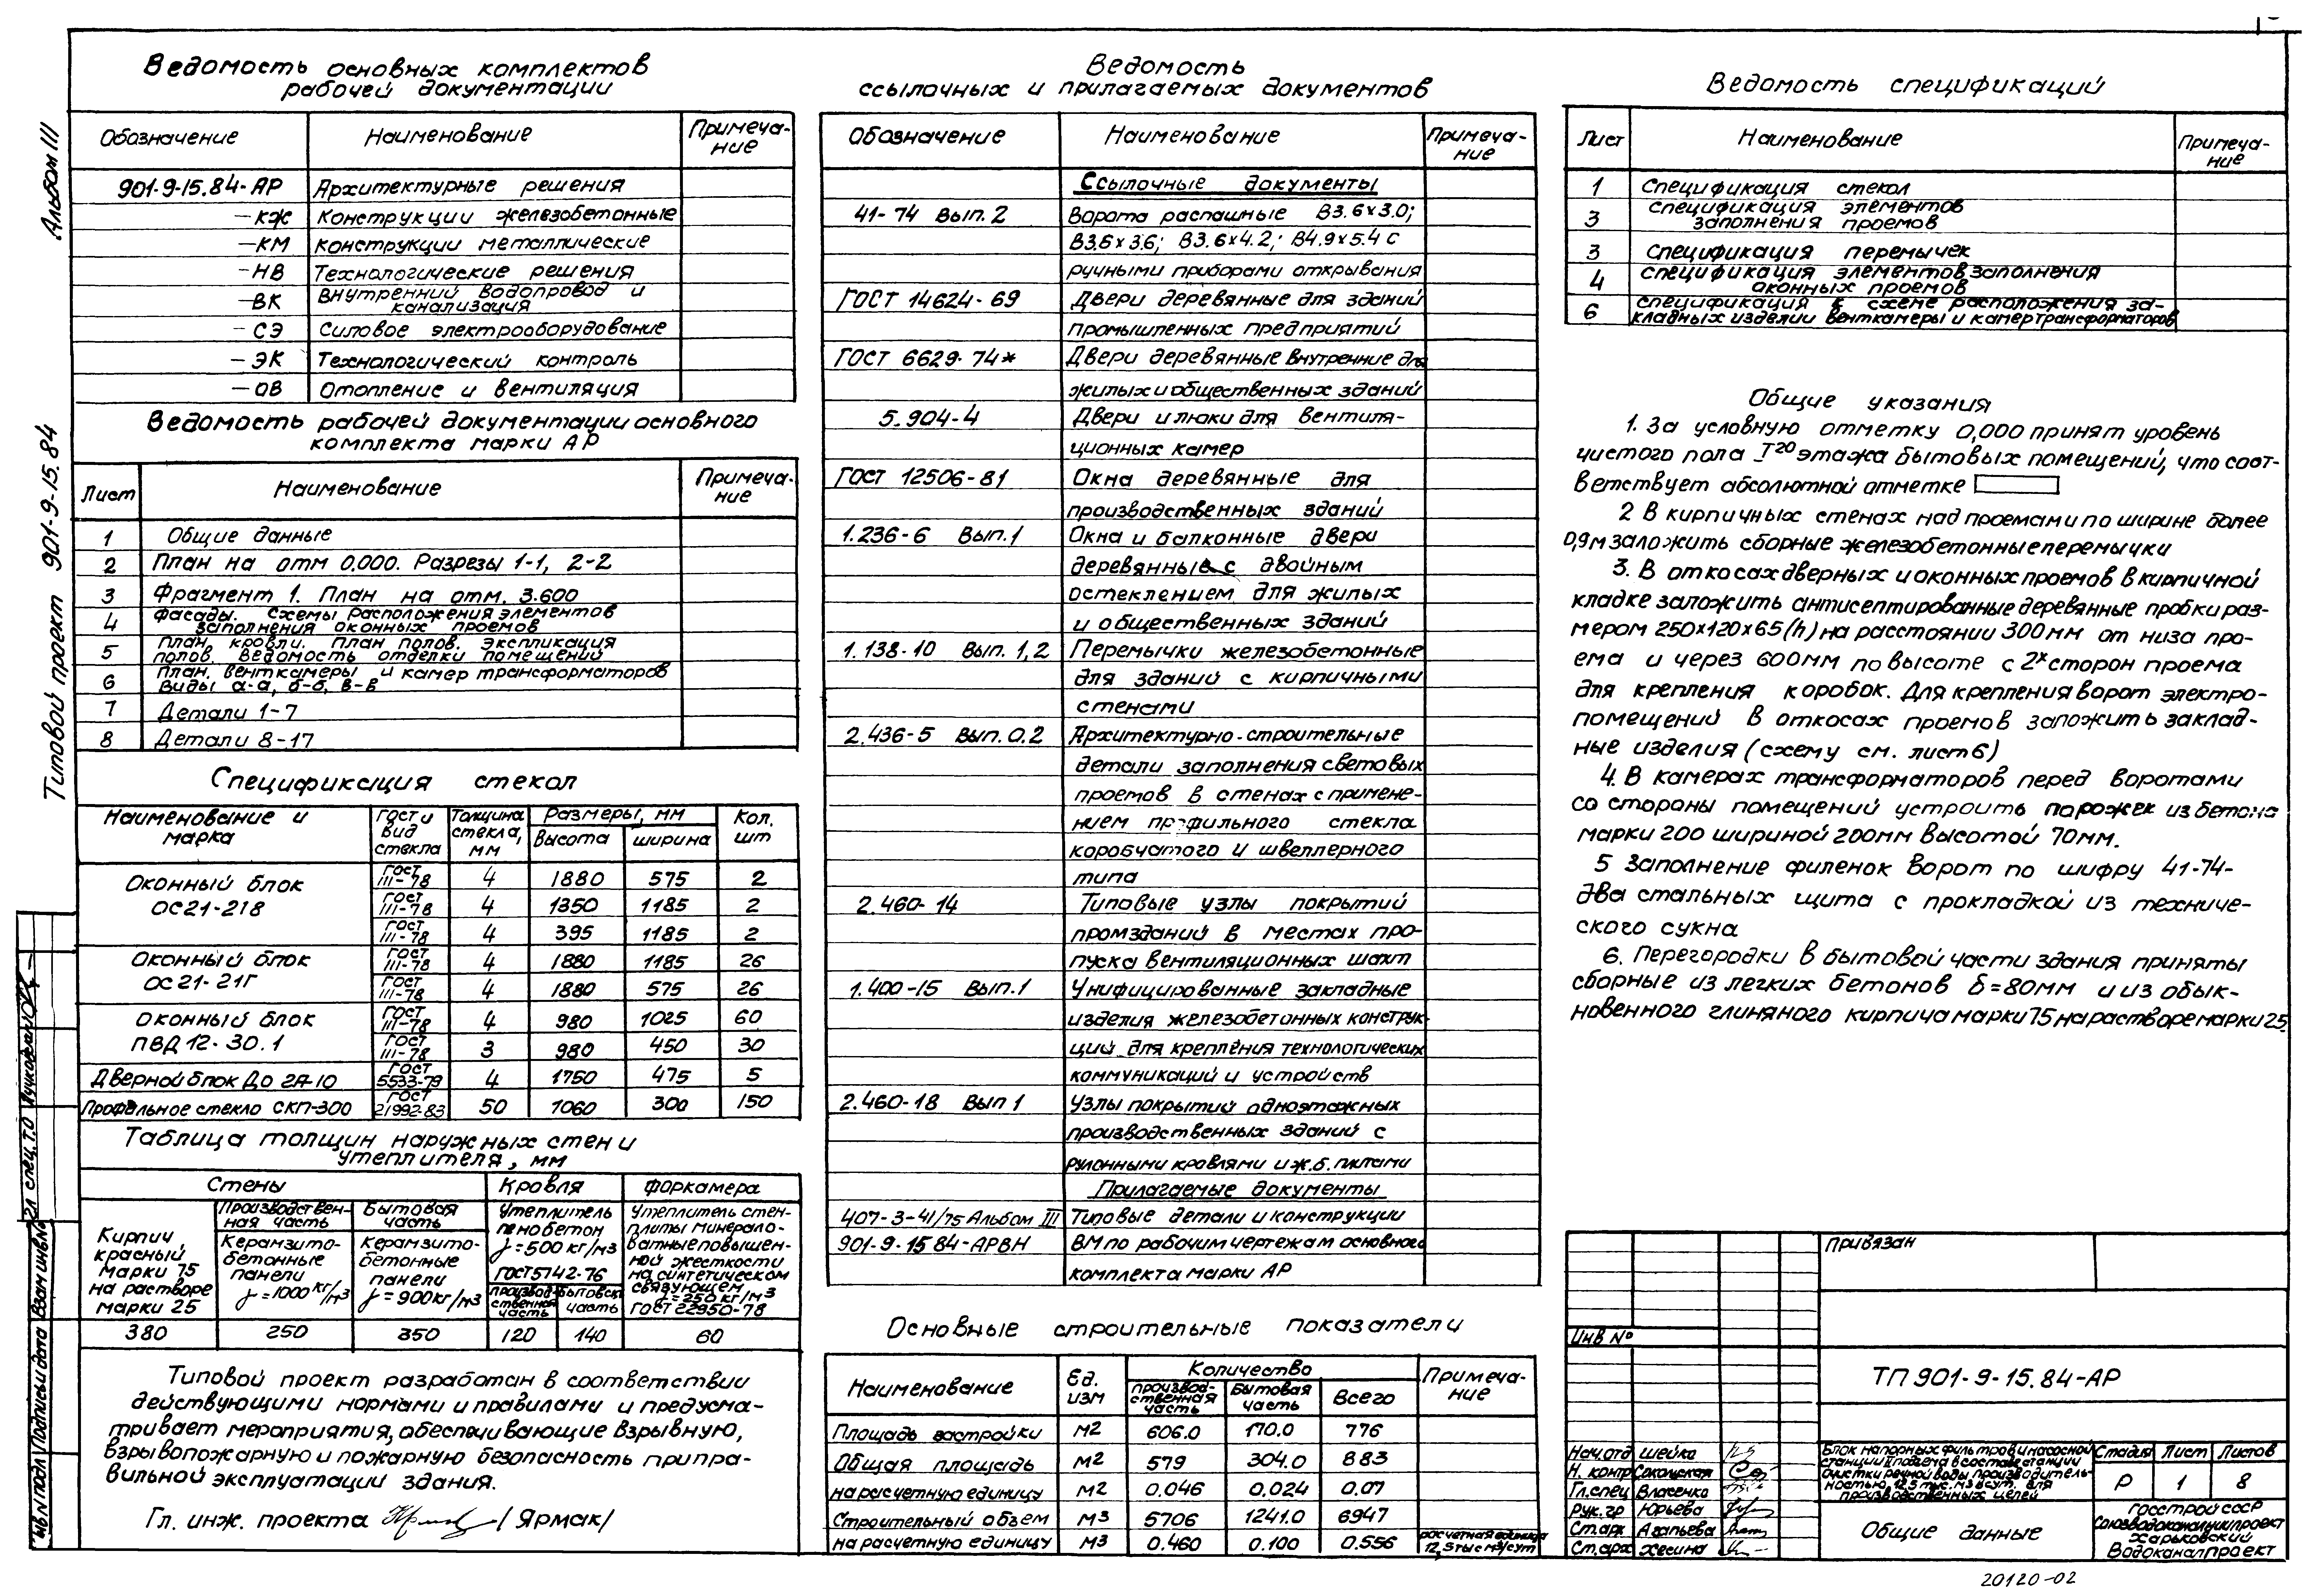 Альбом III
Типовой проект 901-9-15.84
Ведомость основных комплектов
рабочей документации
Обозначение Наименование Примеча-
ние
901-9-15.84-АР Архитектурные решения
-КЖ Конструкции железобетонные
-КМ Конструкции металлические
-НВ Технологические решения
-ВК Внутренний водопровод и
канализация
-СЭ Силовое электрооборудование
-ЭК Технологический контроль
-ОВ Отопление и вентиляция
Ведомость рабочей документации основного
комплекта марки АР
Лист Наименование Примеча-
ние
1 Общие данные
2 План на отм 0.000. Разрезы 1-1, 2-2
3 Фрагмент 1. План на отм. 3.600
4 Фасады. Схемы расположения элементов
заполнения оконных проемов
5 План кровли. План полов. Экспликация
полов. Ведомость отделки помещений
6 План. венткамеры и камер трансформаторов
Виды а-а, б-б, в-в
7 Детали 1-7
8 Детали 8-17
Спецификация стекол
Наименование и
марка
ГОСТ и
вид
стекла
Толщина
стекла,
мм
Размеры, мм
Высота ширина
Кол.
шт
Оконный блок
ОС21-21В
ГОСТ
111-78 4 1880 575 2
ГОСТ
111-78 4 1350 1185 2
ГОСТ
111-78 4 395 1185 2
Оконный блок
ОС21-21Г
ГОСТ
111-78 4 1880 1185 26
ГОСТ
111-78 4 1880 575 26
Оконный блок
ПВД 12-30.1
ГОСТ
111-78 4 980 1025 60
ГОСТ
111-78 3 980 450 30
Дверной блок До 21-10 ГОСТ
5533-79 4 1750 475 5
Профильное стекло СКП-300 ГОСТ
21992-83 50 1060 300 150
Таблица толщин наружных стен и
утеплителя, мм
Стены Кровля Форкамера
Кирпич
красный
марки 75
на растворе
марки 25
Производствен-
ная часть
Керамзито-
бетонные
панели
γ=1000 кг/м3
Бытовая
часть
Керамзито-
бетонные
панели
γ=900кг/м3
Утеплитель
пенобетон
γ=500 кг/м3
ГОСТ 5742-76
производ-
ственная
часть
бытовая
часть
Утеплитель стен-
плиты минерало-
ватные повышен-
ной жесткости
на синтетическом
связующем
γ=250 кг/м3
ГОСТ 22950-78
380 250 350 120 140 60
Типовой проект разработан в соответствии
действующими нормами и правилами и предусма-
тривает мероприятия, обеспечивающие взрывную,
взрывопожарную и пожарную безопасность при пра-
вильной эксплуатации здания.
Гл. инж. проекта /Ярмак/
Ведомость
ссылочных и прилагаемых документов
Обозначение Наименование Примеча-
ние
Ссылочные документы
41-74 Вып. 2 Ворота распашные В3.6×3.0;
В3.6×3.6; В3.6×4.2; В4.9×5.4 с
ручными приборами открывания
ГОСТ 14624-69 Двери деревянные для зданий
промышленных предприятий
ГОСТ 6629-74* Двери деревянные внутренние для
жилых и общественных зданий
5.904-4 Двери и люки для вентиля-
ционных камер
ГОСТ 12506-81 Окна деревянные для
производственных зданий
1.236-6 Вып.1 Окна и балконные двери
деревянные с двойным
остеклением для жилых
и общественных зданий
1.138-10 Вып. 1,2 Перемычки железобетонные
для зданий с кирпичными
стенами
2.436-5 Вып. 0.2 Архитектурно-строительные
детали заполнения световых
проемов в стенах с примене-
нием профильного стекла
коробчатого и швеллерного
типа
2.460-14 Типовые узлы покрытий
промзданий в местах про-
пуска вентиляционных шахт
1.400-15 Вып.1 Унифицированные закладные
изделия железобетонных конструк-
ций для крепления технологических
коммуникаций и устройств
2.460-18 Вып 1 Узлы покрытий одноэтажных
производственных зданий с
рулонными кровлями и ж.б. плитами
Прилагаемые документы
407-3-41/75 Альбом III Типовые детали и конструкции
901-9-15 84-АРВН ВМ по рабочим чертежам основного
комплекта марки АР
Основные строительные показатели
Наименование Ед.
изм
Количество
производ-
ственная
часть
Бытовая
часть
Всего
Примеча-
ние
Площадь застройки м2 606.0 170.0 776
Общая площадь м2 579 304.0 883
на расчетную единицу м2 0.046 0.024 0.07
Строительный объем м3 5706 1241.0 6947
на расчетную единицу м3 0.460 0.100 0.556 расчетная единица
12,5 тыс м3/сут
Ведомость спецификаций
Лист Наименование Примеча-
ние
1 Спецификация стекол
3 Спецификация элементов
заполнения проемов
3 Спецификация перемычек
4 Спецификация элементов заполнения
оконных проемов
6 Спецификация к схеме расположения за-
кладных изделий венткамеры и камер трансформаторов
Общие указания
1. За условную отметку 0,000 принят уровень
чистого пола I го этажа бытовых помещений, что соот-
ветствует абсолютной отметке
2 В кирпичных стенах над проемами по ширине более
0,9м заложить сборные железобетонные перемычки
3. В откосах дверных и оконных проемов в кирпичной
кладке заложить антисептированные деревянные пробки раз-
мером 250×120×65(h) на расстоянии 300мм от низа про-
ема и через 600мм по высоте с 2х сторон проема
для крепления коробок. Для крепления ворот электро-
помещений в откосах проемов заложить заклад-
ные изделия (схему см. лист 6)
4. В камерах трансформаторов перед воротами
со стороны помещений устроить порожек из бетона
марки 200 шириной 200мм высотой 70мм.
5 Заполнение филенок ворот по шифру 41-74-
два стальных щита с прокладкой из техниче-
ского сукна
6. Перегородки в бытовой части здания приняты
сборные из легких бетонов δ=80мм и из обык-
новенного глиняного кирпича марки 75 на растворе марки 25.
Привязан
Инв №
ТП 901-9-15.84-АР
Нач.отд Шейко
Н. контр Сокольская
Гл.спец Власенко
Рук.гр Юрьева
Ст.арх Агапьева
Ст.арх Хесина
Блок напорных фильтров и насосной
станции II подъема в составе станции
очистки речной воды производитель-
ностью 12.5 тыс. м3/сут. для
производственных целей
Стадия Лист Листов
Р 1 8
Общие данные
Госстрой СССР
Союзводоканалниипроект
Харьковский
Водоканалпроект
20120-02
Гл спец. Т.О
Взам инв.№
Подпись и дата
Инв N подл